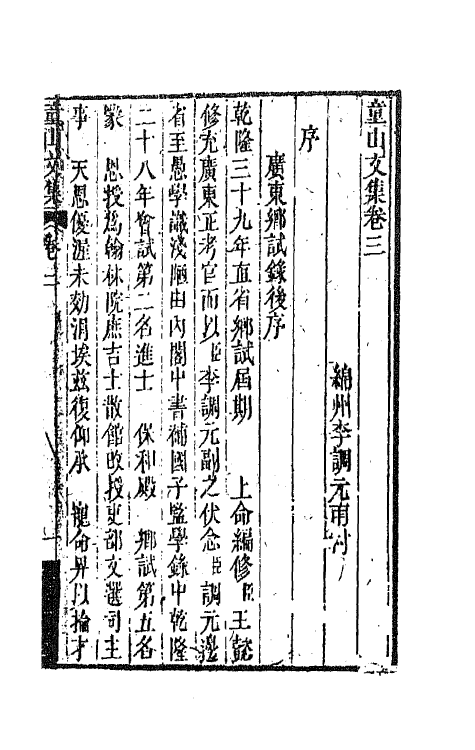 童山文集卷三
綿州李調元雨村
序
廣東鄉試錄後序
乾隆三十九年直省鄉試屆期 上命編修臣王懿
修充廣東正考官而以臣李調元副之伏念臣調元邊
省至愚學識淺陋由內閣中書補國子監學錄中乾隆
二十八年會試第二名進士 保和殿 鄉試第五名
蒙 恩授爲翰林院庶吉士散館改授吏部文選司主
事 天恩優渥未効涓埃兹復仰承 寵命畀以掄才
童山文集 卷三 一